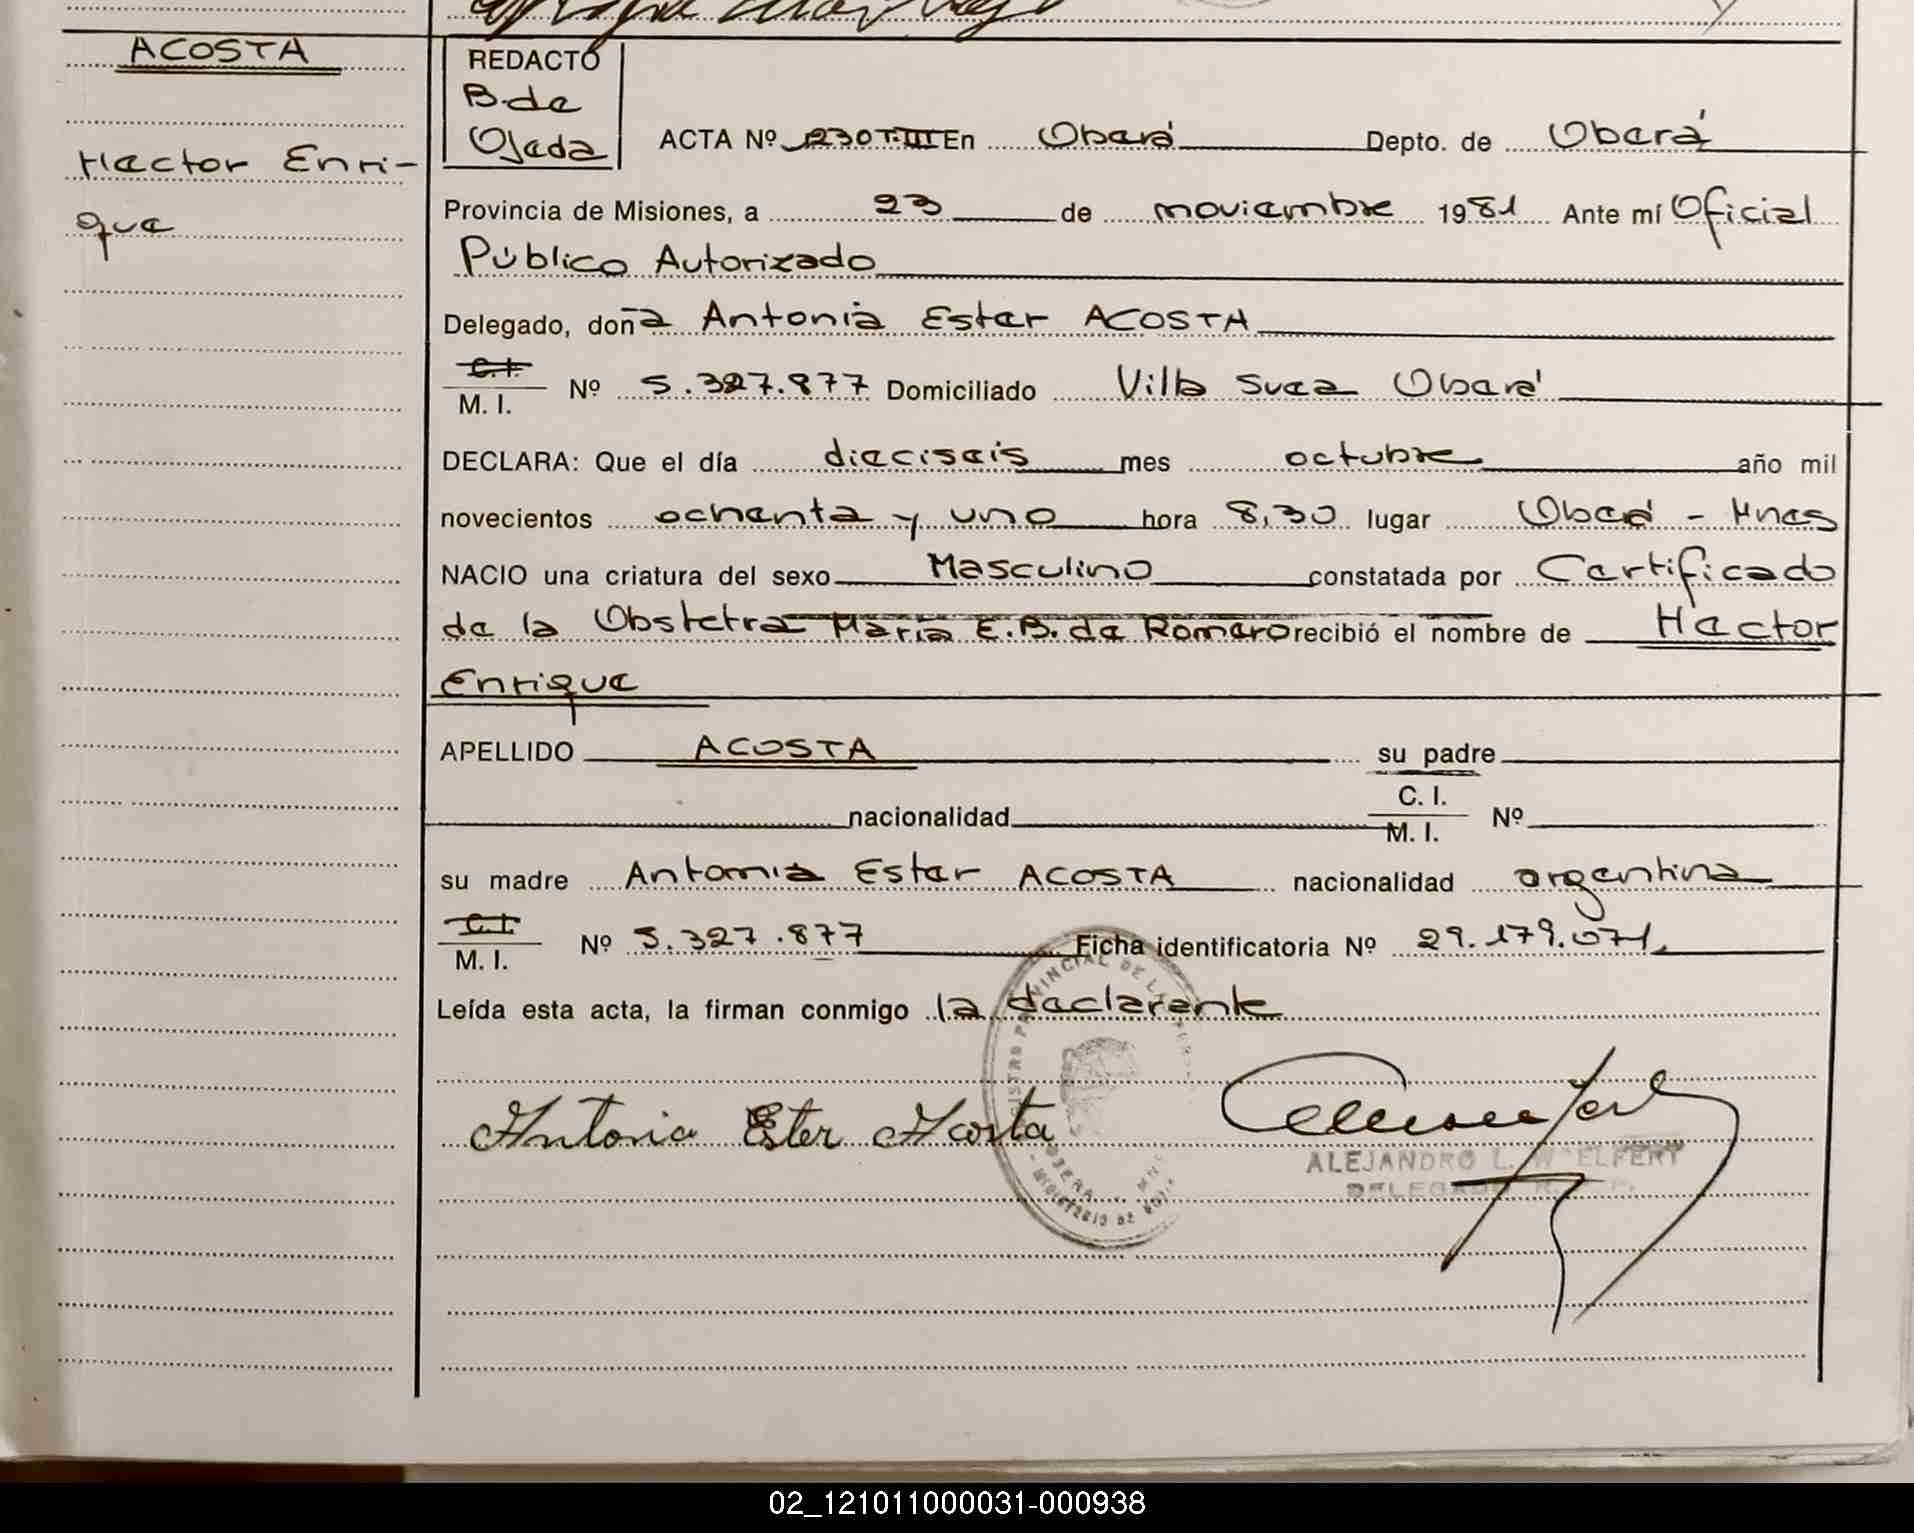 ACOSTA
Hector Enri-
que
REDACTÓ
B. de
Ojeda
ACTA Nº 230 T.III En Oberá Depto. de Oberá
Provincia de Misiones, a 23 de noviembre 1981 Ante mí Oficial
Público Autorizado
Delegado, doña Antonia Ester ACOSTA
C.I.
M. I. Nº 5.327.877 Domiciliado Villa Suea Oberá
DECLARA: Que el día dieciseis mes octubre año mil
novecientos ochenta y uno hora 8,30 lugar Oberá - Mnes
NACIO una criatura del sexo Masculino constatada por Certificado
de la Obstetra María E.B. de Romero recibió el nombre de Hector
Enrique
APELLIDO ACOSTA su padre
nacionalidad C. I. M. I. Nº
su madre Antonia Ester ACOSTA nacionalidad argentina
C.I.
M. I. Nº 5.327.877 Ficha identificatoria Nº 29.179.071
Leída esta acta, la firman conmigo la declarante
Antonia Ester Acosta
ALEJANDRO L.
02_121011000031-000938